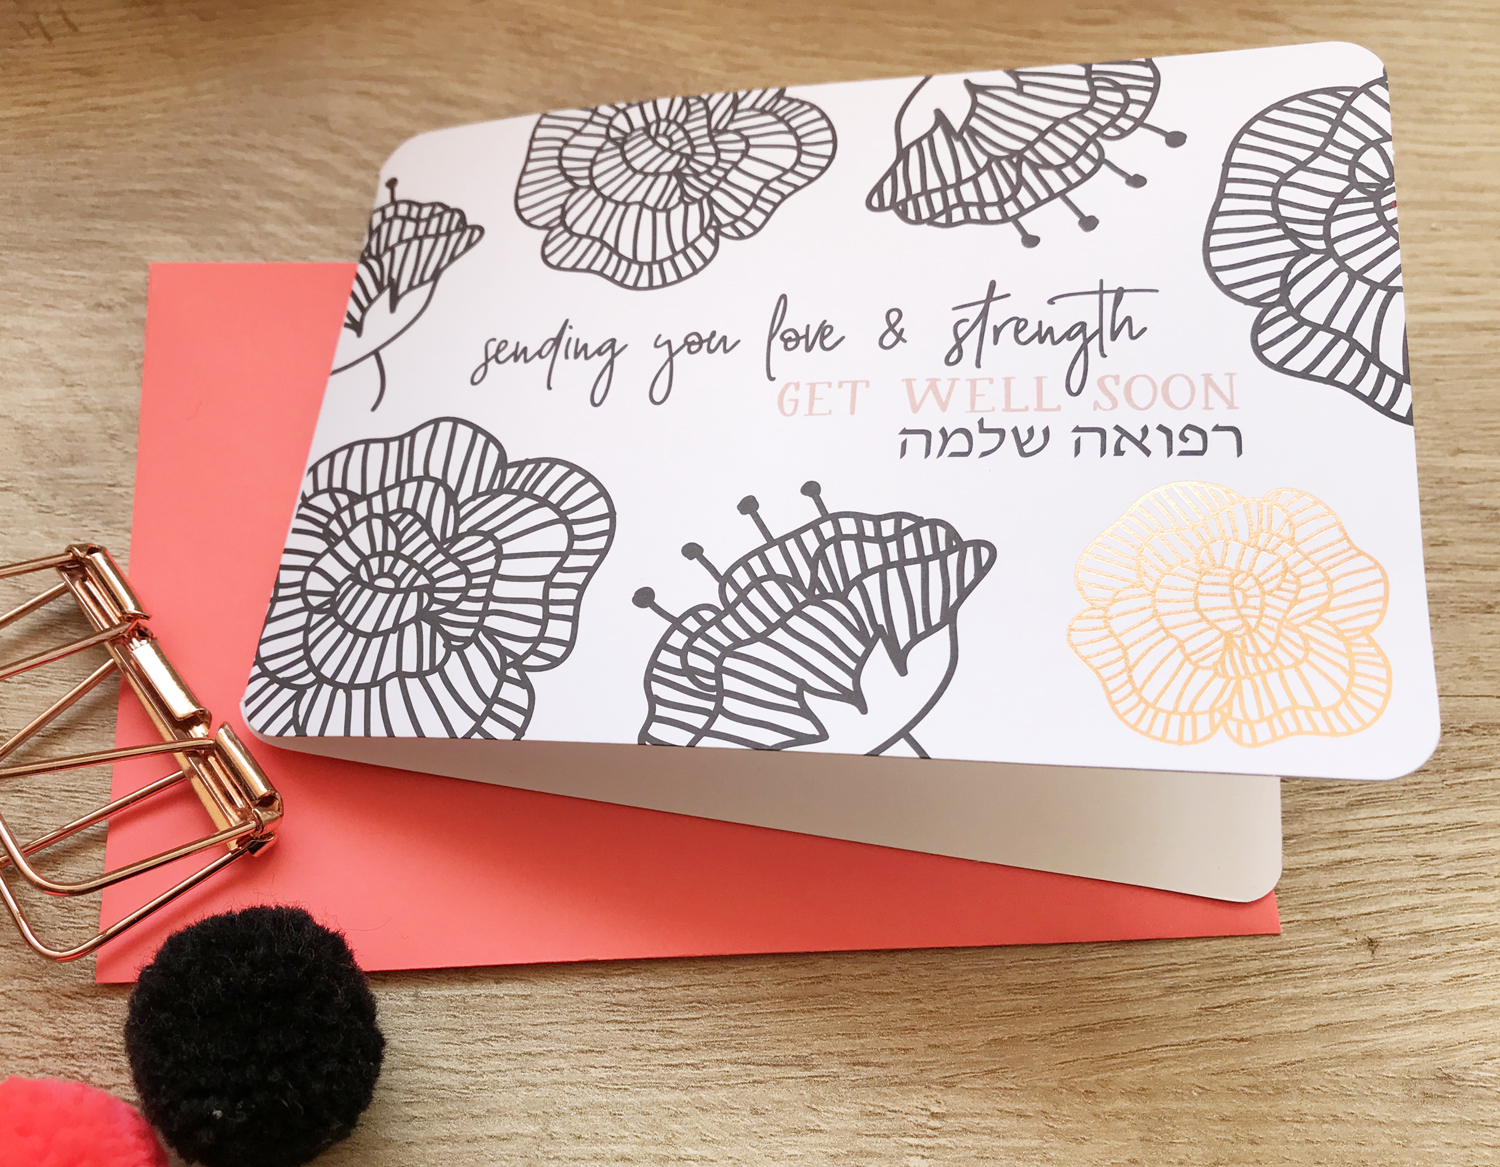 sending you love & strength
GET WELL SOON
רפואה שלמה